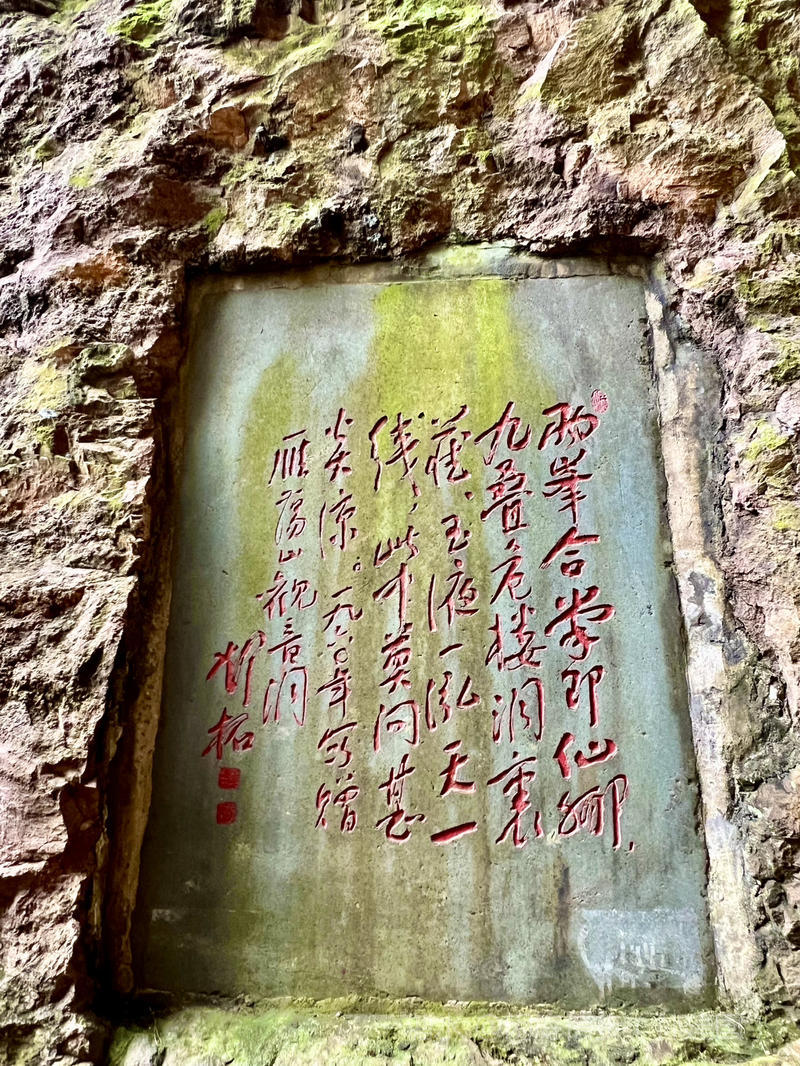 两峯合掌即仙鄉，
九叠危楼洞裏
藏、玉液一泓天一
线；此中莫问甚
炎凉。一九六〇年写赠
雁荡山观音洞
邓拓